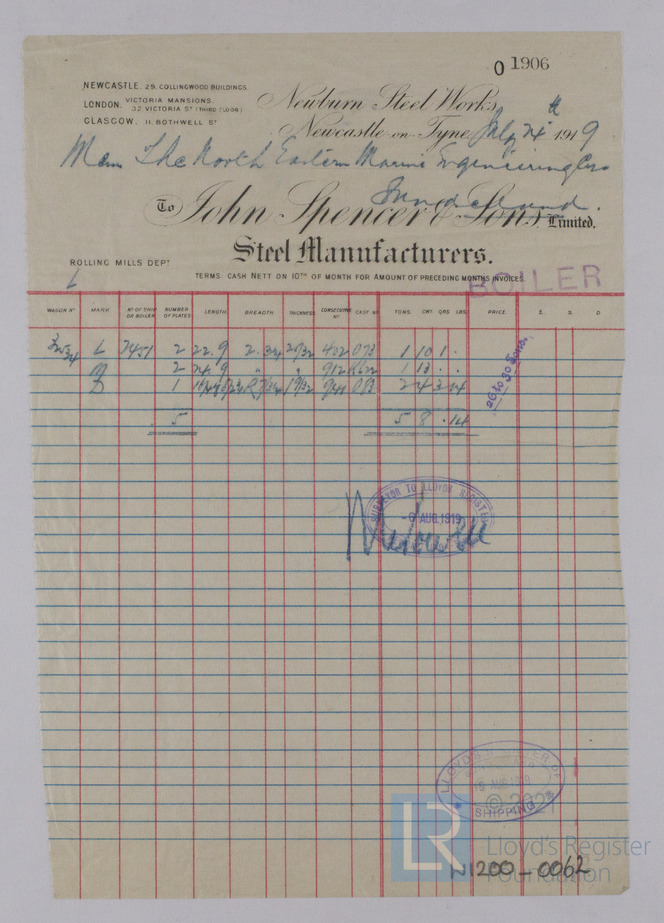 O 1906
NEWCASTLE. 29. COLLINGWOOD BUILDINGS.
LONDON. VICTORIA MANSIONS.
32 VICTORIA ST (THIRD FLOOR)
GLASGOW. 11. BOTHWELL ST
Newburn Steel Works,
Newcastle-on-Tyne, July 24th 1919
The North Eastern Marine Engineering Co
Sunderland.
To John Spencer & Sons, Limited.
Steel Manufacturers.
ROLLING MILLS DEPT
TERMS: CASH NETT ON 10TH OF MONTH FOR AMOUNT OF PRECEDING MONTHS INVOICES.
BOILER
WAGON No MARK No OF SHIP OR BOILER NUMBER OF PLATES LENGTH BREADTH THICKNESS CONSECUTIVE No CAST No TONS CWT QRS LBS PRICE £ S D
L 2 22.9 1 10 1 .
2 24.9 912 1 13 . .
1 2 4 3 14
5 5 8 . 14
26 to 30 tons.
SURVEYOR TO LLOYDS REGISTER
-6 AUG. 1919
LLOYD'S REGISTER OF
AUG 1919
SHIPPING
© 2021
LR Lloyd's Register
Foundation
W1200-0062